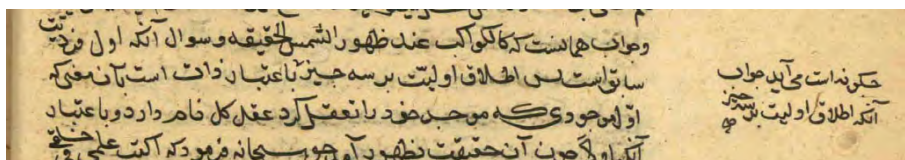 وجواب همانست که کالکواکب عند ظهور الشمس الحقیقه وسوال آنکه اول فردیت
سابق است پس اطلاق اولیت بر سه چیز باعتبار ذات است بآن معنی که
اول موجودی که موجد خود را تعقل کرد عقل کل نام دارد و باعتبار
آنکه اولا چون آن حقیقت بظهور آمد حق سبحانه فرمود که اکتب علمی فی خلقی
چگونه است می آید جواب
آنکه اطلاق اولیت بر سه چیز